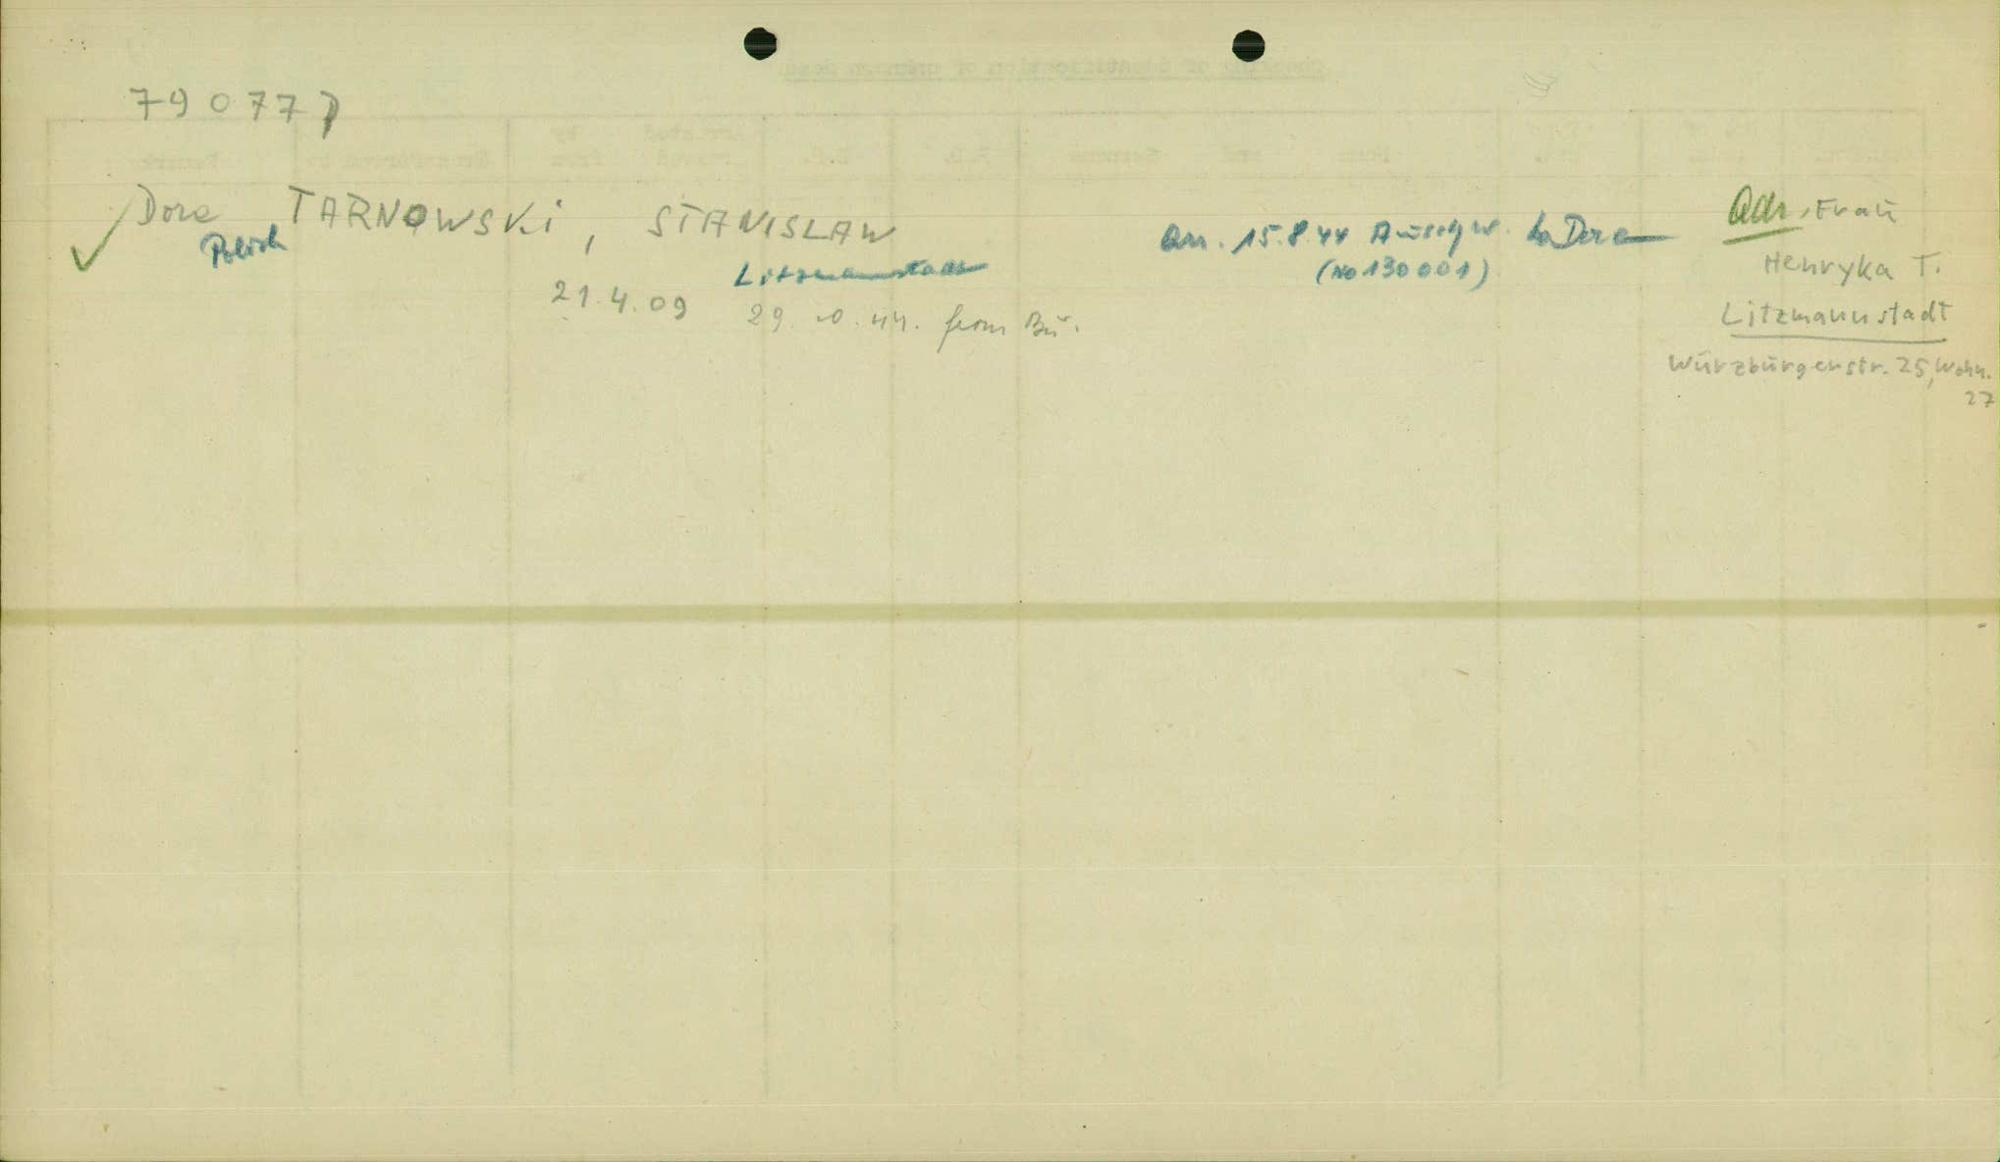 790777
Dora TARNOWSKi, STANISLAW
Polish
Litzmannstadt
21.4.09 29. 10. 44. from Bu.
arr. 15.8.44 Auschw. to Dora
(No 130001)
Adr. Frau
Henryka T.
Litzmannstadt
Würzburgerstr. 25, Wohn.
27